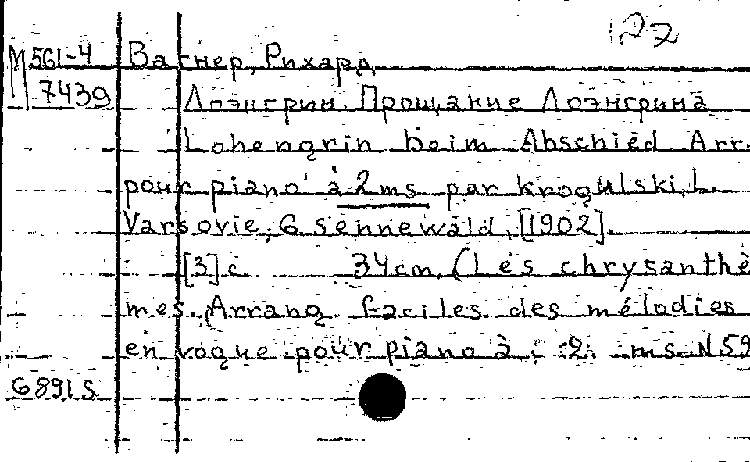 127
М 561-4 Вагнер, Рихард
7439 Лоэнгрин. Прощание Лоэнгрина
Lohengrin beim Abschied Arr.
pour piano à 2 ms par Krogulski, L.
Varsovie, G Sennewald, [1902].
[3] с 34 cm. (Les chrysanthè
mes. Arrang faciles des mélodies
en vogue pour piano à 2 ms N 59
G 891 S